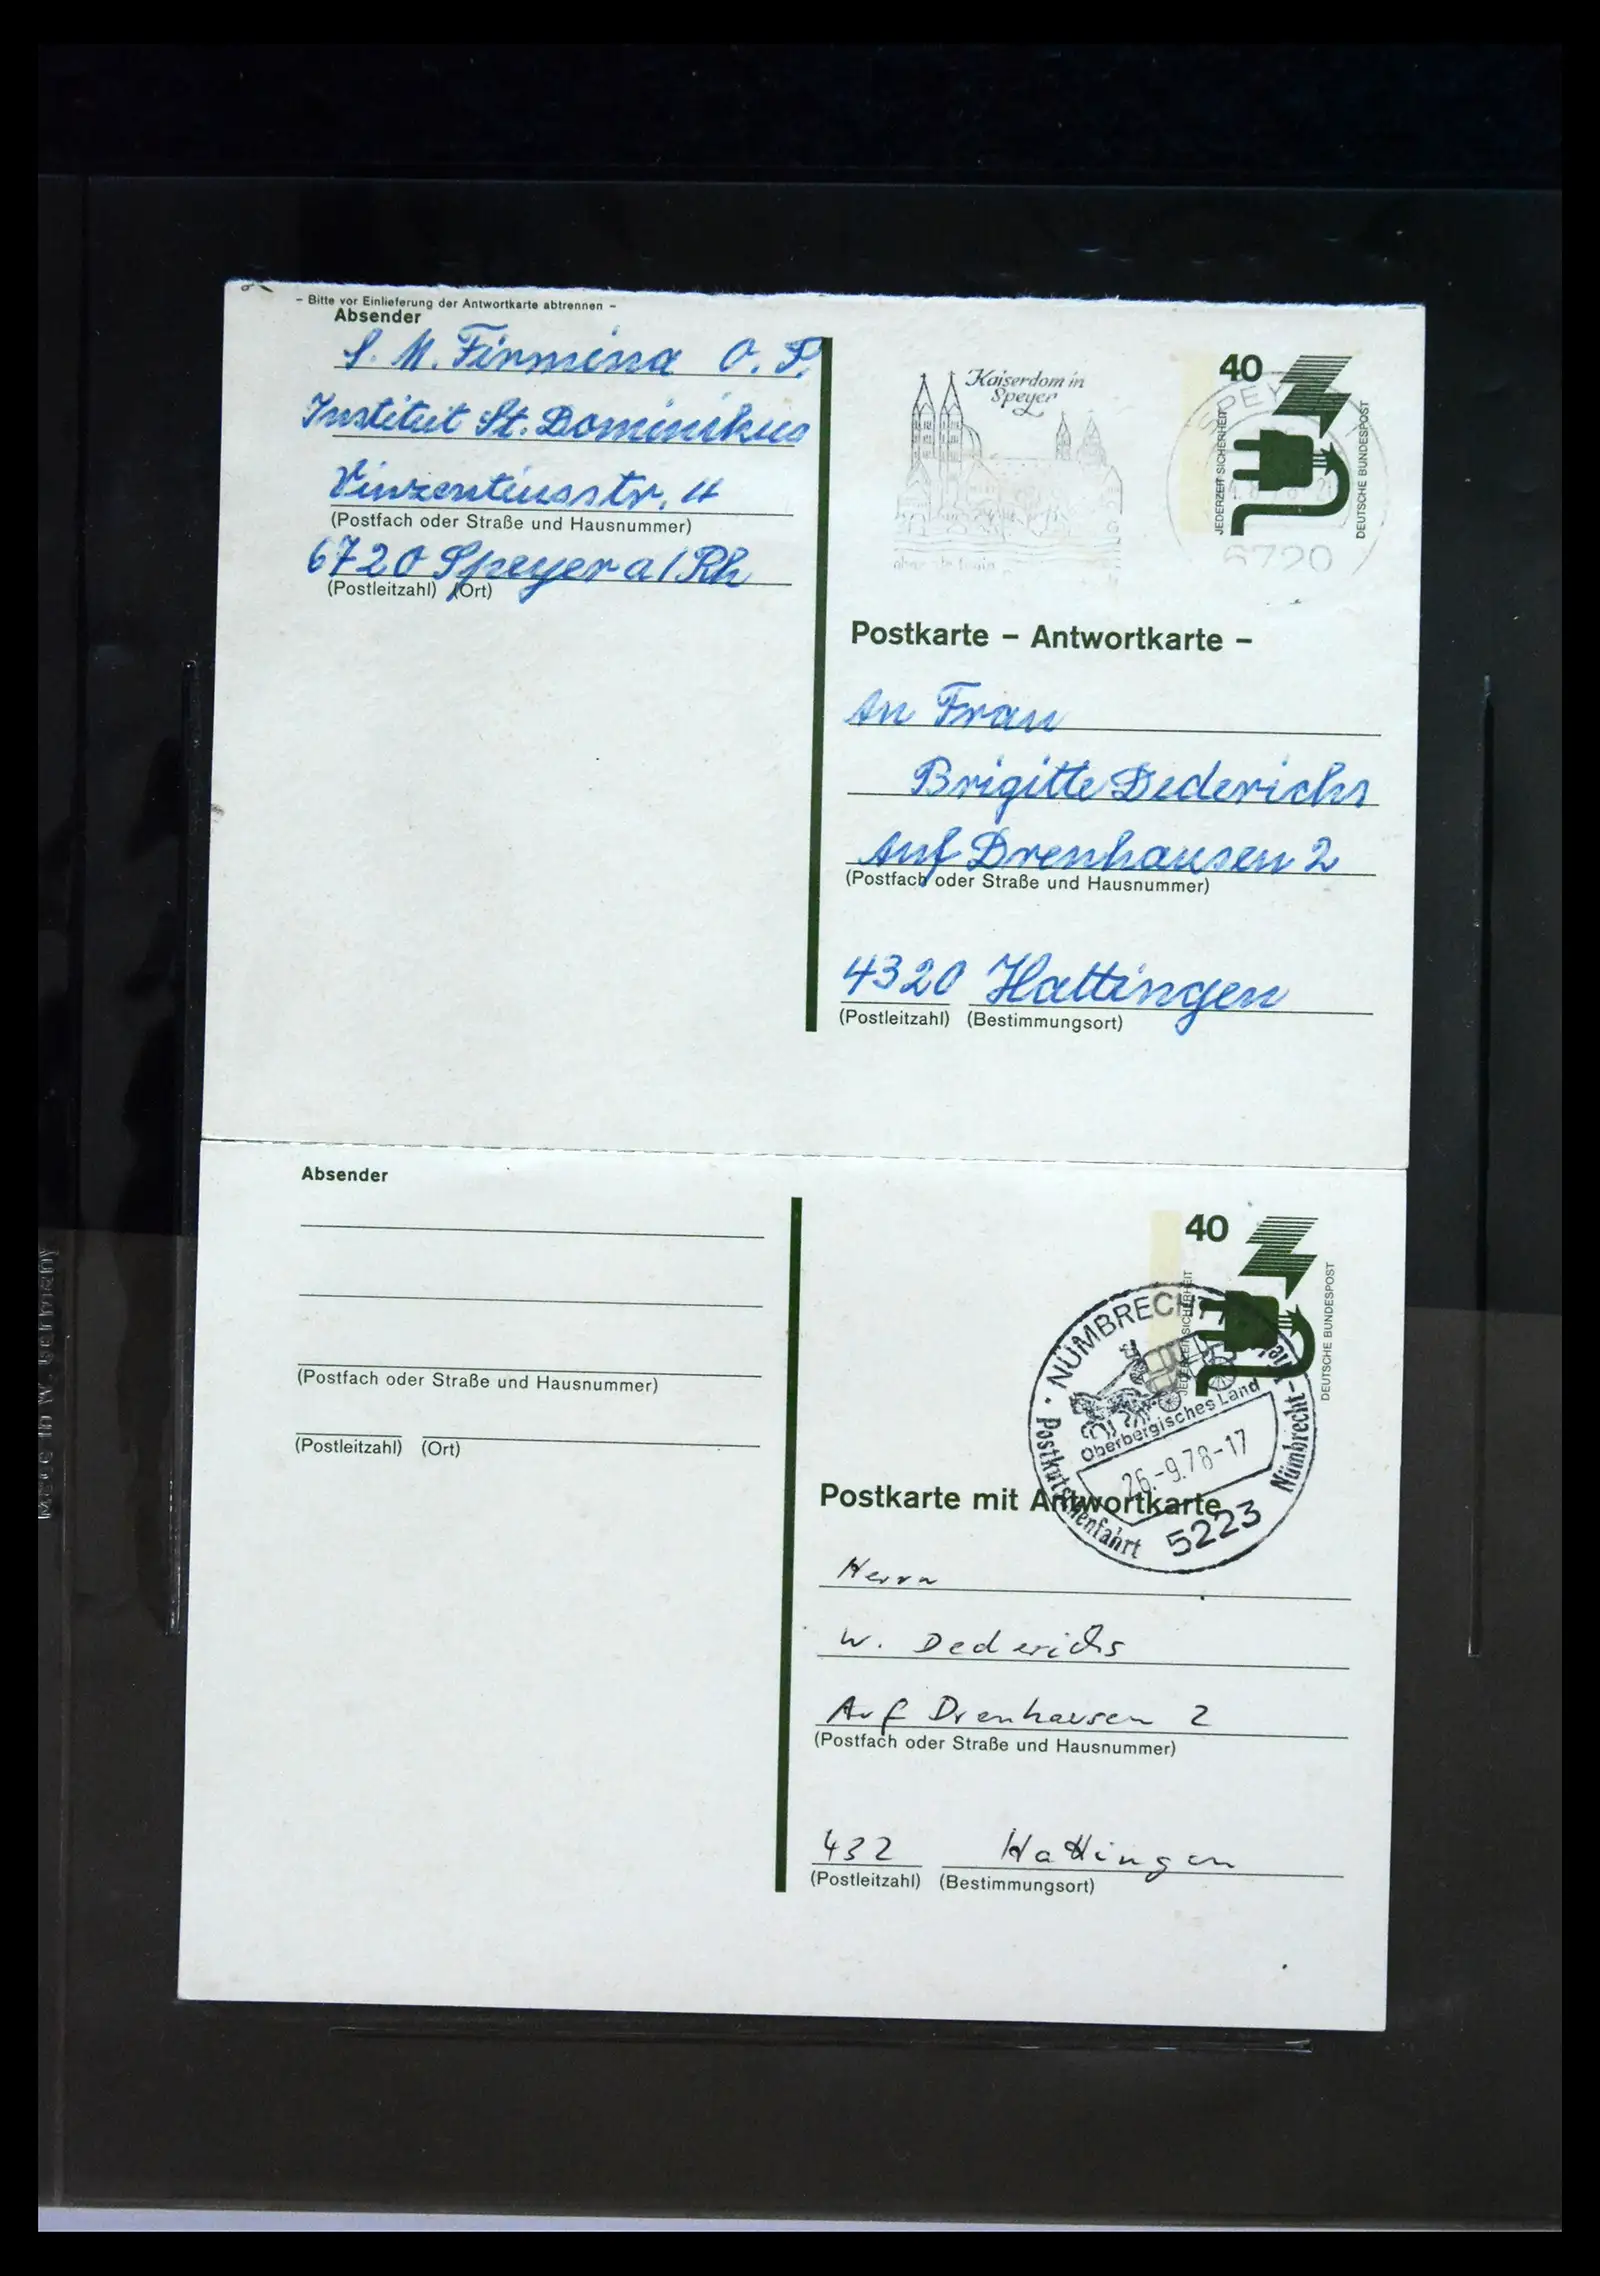 – Bitte vor Einlieferung der Antwortkarte abtrennen –
Absender
S. M. Firmina O. P.
Institut St. Dominikus
Vinzentiusstr. 4
(Postfach oder Straße und Hausnummer)
6720 Speyer a/Rh
(Postleitzahl) (Ort)
Kaiserdom in
Speyer
SPEYER
6720
40
JEDERZEIT SICHERHEIT
DEUTSCHE BUNDESPOST
Postkarte – Antwortkarte –
An Frau
Brigitte Dederichs
Auf Drenhausen 2
(Postfach oder Straße und Hausnummer)
4320 Hattingen
(Postleitzahl) (Bestimmungsort)
Absender
(Postfach oder Straße und Hausnummer)
(Postleitzahl) (Ort)
40
JEDERZEIT SICHERHEIT
DEUTSCHE BUNDESPOST
NÜMBRECHT
Oberbergisches Land
26.-9.78-17
5223
Postkutschenfahrt Nümbrecht-
Postkarte mit Antwortkarte
Herrn
W. Dederichs
Auf Drenhausen 2
(Postfach oder Straße und Hausnummer)
432 Hattingen
(Postleitzahl) (Bestimmungsort)
Made in W. Germany